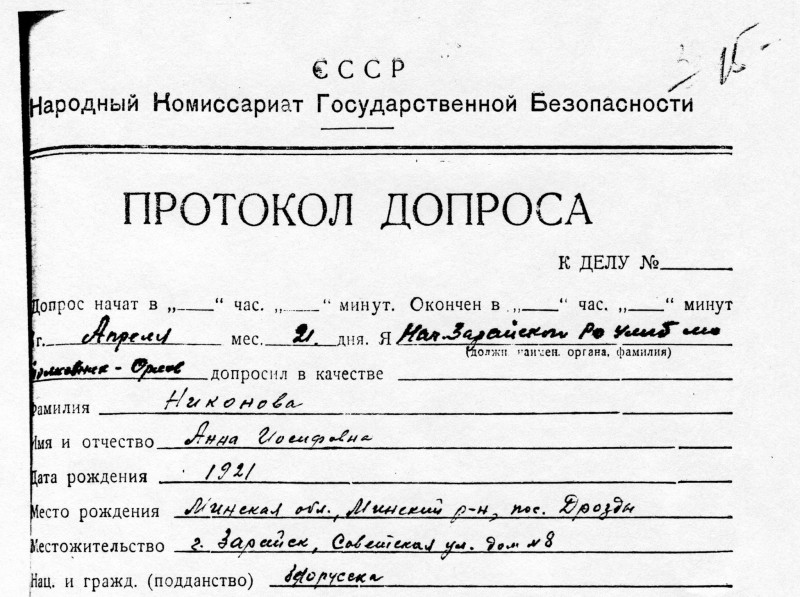 15
СССР
Народный Комиссариат Государственной Безопасности
ПРОТОКОЛ ДОПРОСА
К ДЕЛУ №
Допрос начат в „ “ час. „ “ минут. Окончен в „ “ час. „ “ минут
г. Апреля мес. 21. дня. Я Нач. Зарайского РО
(должн наимен. органа, фамилия)
Орлов допросил в качестве
Фамилия Никонова
Имя и отчество Анна Иосифовна
Дата рождения 1921
Место рождения Минская обл., Минский р-н, пос. Дрозды
Местожительство г. Зарайск, Советская ул. дом № 8
Нац. и гражд. (подданство) белоруска